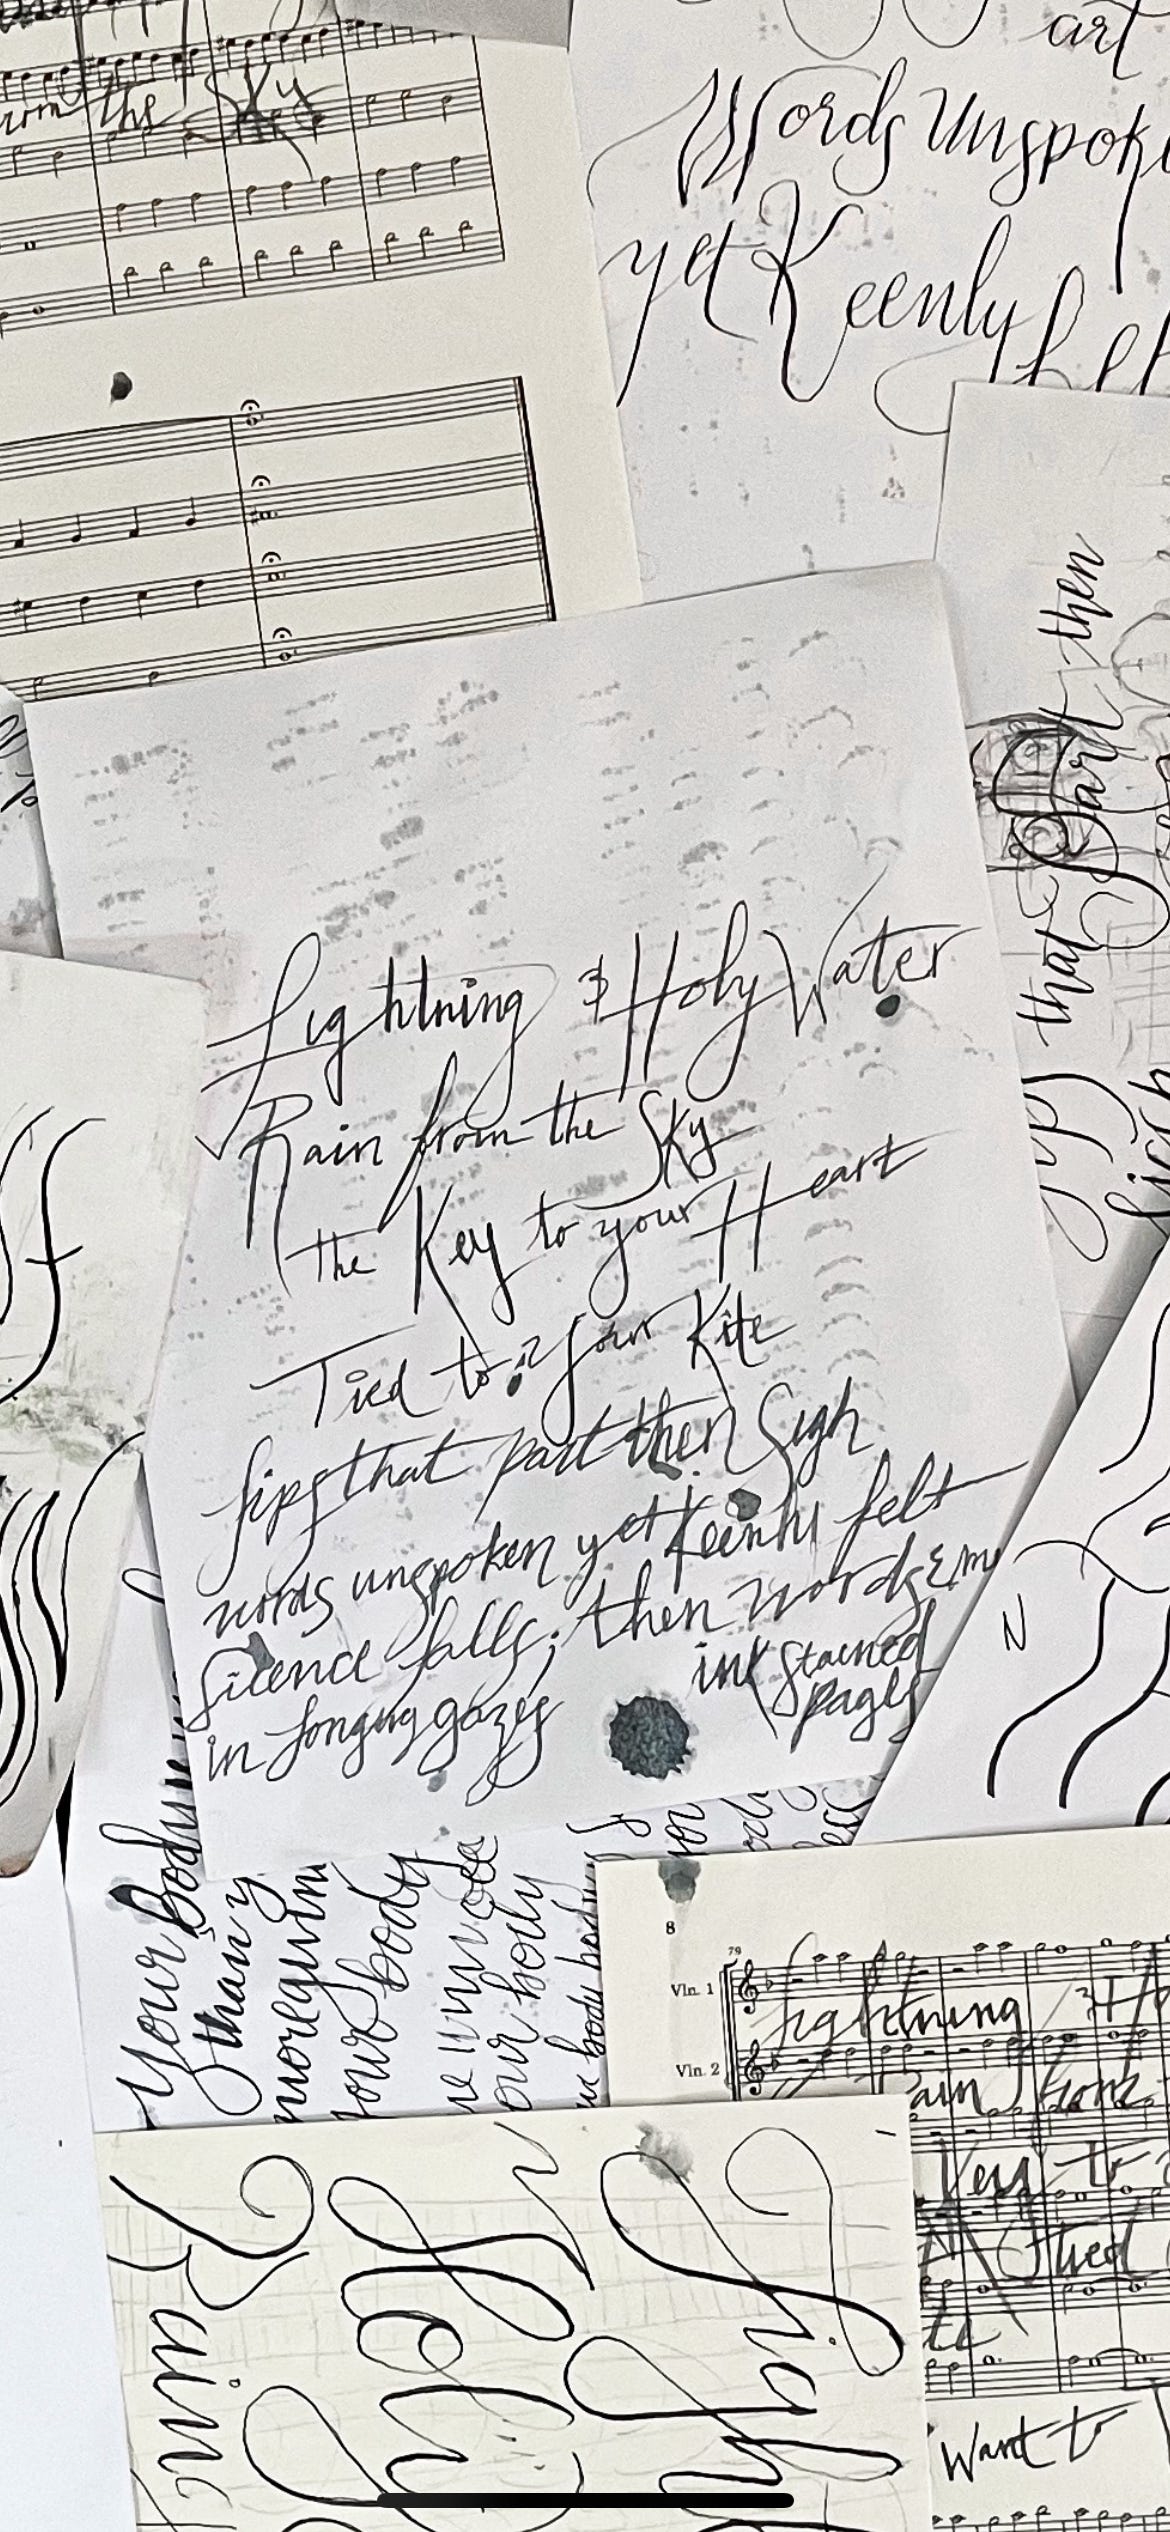 from the Sky
art
Words Unspoke
yet Keenly
felt
Lightning & Holy Water
Rain from the Sky
the Key to your Heart
Tied to your Kite
lips that part then Sigh
words unspoken yet Keenly felt
Silence falls; then words & m
in longing gazes
ink stained
pages
lips that Part then
N
Your Body
than y
your body
our body
body body
8
79
Vln. 1
Lightning & H
Vln. 2
ain from
Key to
tied
te
Want to
Ligh
Hol
Rain